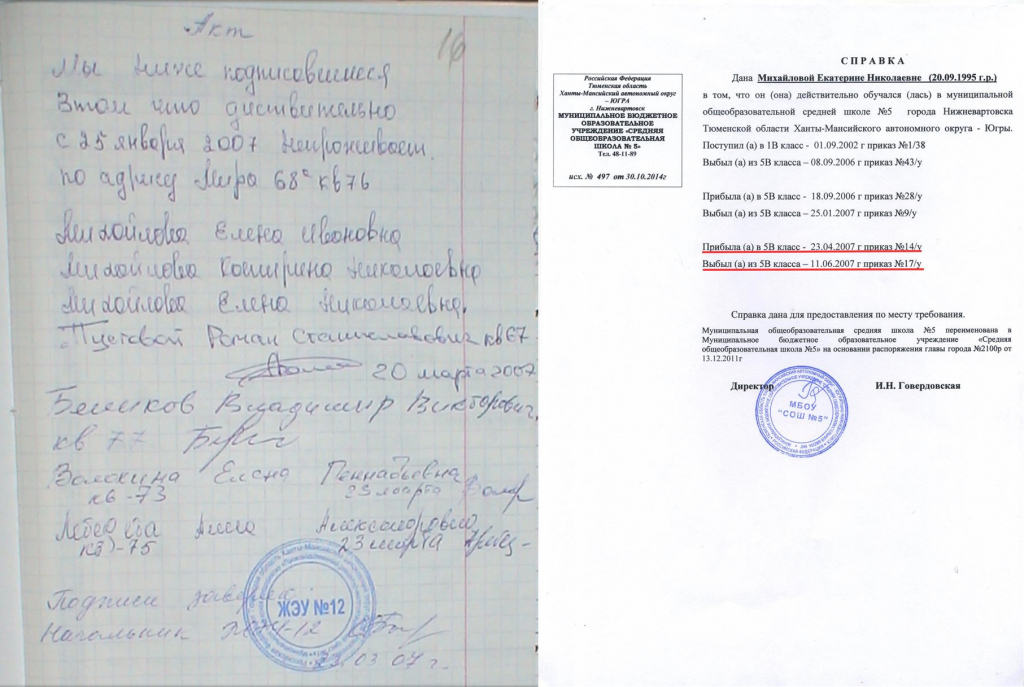 Акт
16
Мы ниже подписавшиеся
в том что действительно
с 25 января 2007 непроживает.
по адресу Мира 68а кв 76
Михайлова Елена Ивановна
Михайлова Катирина Николаевна
Михайлова Елена Николаевна.
Пустовой Роман Станиславович кв 67
20 марта 2007
Беликов Владимир Викторович,
кв 77
Елена Геннадьевна
кв-73 23 марта
Алла Александровна
кв-75 23 марта
Подписи заверяю
Начальник ЖЭУ-12
ЖЭУ №12
23.03 07 г.
Российская Федерация
Тюменская область
Ханты-Мансийский автономный округ
– ЮГРА
г. Нижневартовск
МУНИЦИПАЛЬНОЕ БЮДЖЕТНОЕ
ОБРАЗОВАТЕЛЬНОЕ
УЧРЕЖДЕНИЕ «СРЕДНЯЯ
ОБЩЕОБРАЗОВАТЕЛЬНАЯ
ШКОЛА № 5»
Тел. 48-11-89
исх. № 497 от 30.10.2014г
СПРАВКА
Дана Михайловой Екатерине Николаевне (20.09.1995 г.р.)
в том, что он (она) действительно обучался (лась) в муниципальной
общеобразовательной средней школе №5 города Нижневартовска
Тюменской области Ханты-Мансийского автономного округа - Югры.
Поступил (а) в 1В класс - 01.09.2002 г приказ №1/38
Выбыл (а) из 5В класса – 08.09.2006 г приказ №43/у
Прибыла (а) в 5В класс - 18.09.2006 г приказ №28/у
Выбыл (а) из 5В класса – 25.01.2007 г приказ №9/у
Прибыла (а) в 5В класс - 23.04.2007 г приказ №14/у
Выбыл (а) из 5В класса – 11.06.2007 г приказ №17/у
Справка дана для предоставления по месту требования.
Муниципальная общеобразовательная средняя школа №5 переименована в
Муниципальное бюджетное образовательное учреждение «Средняя
общеобразовательная школа №5» на основании распоряжения главы города №2100р от
13.12.2011г
Директор И.Н. Говердовская
МБОУ
"СОШ №5"